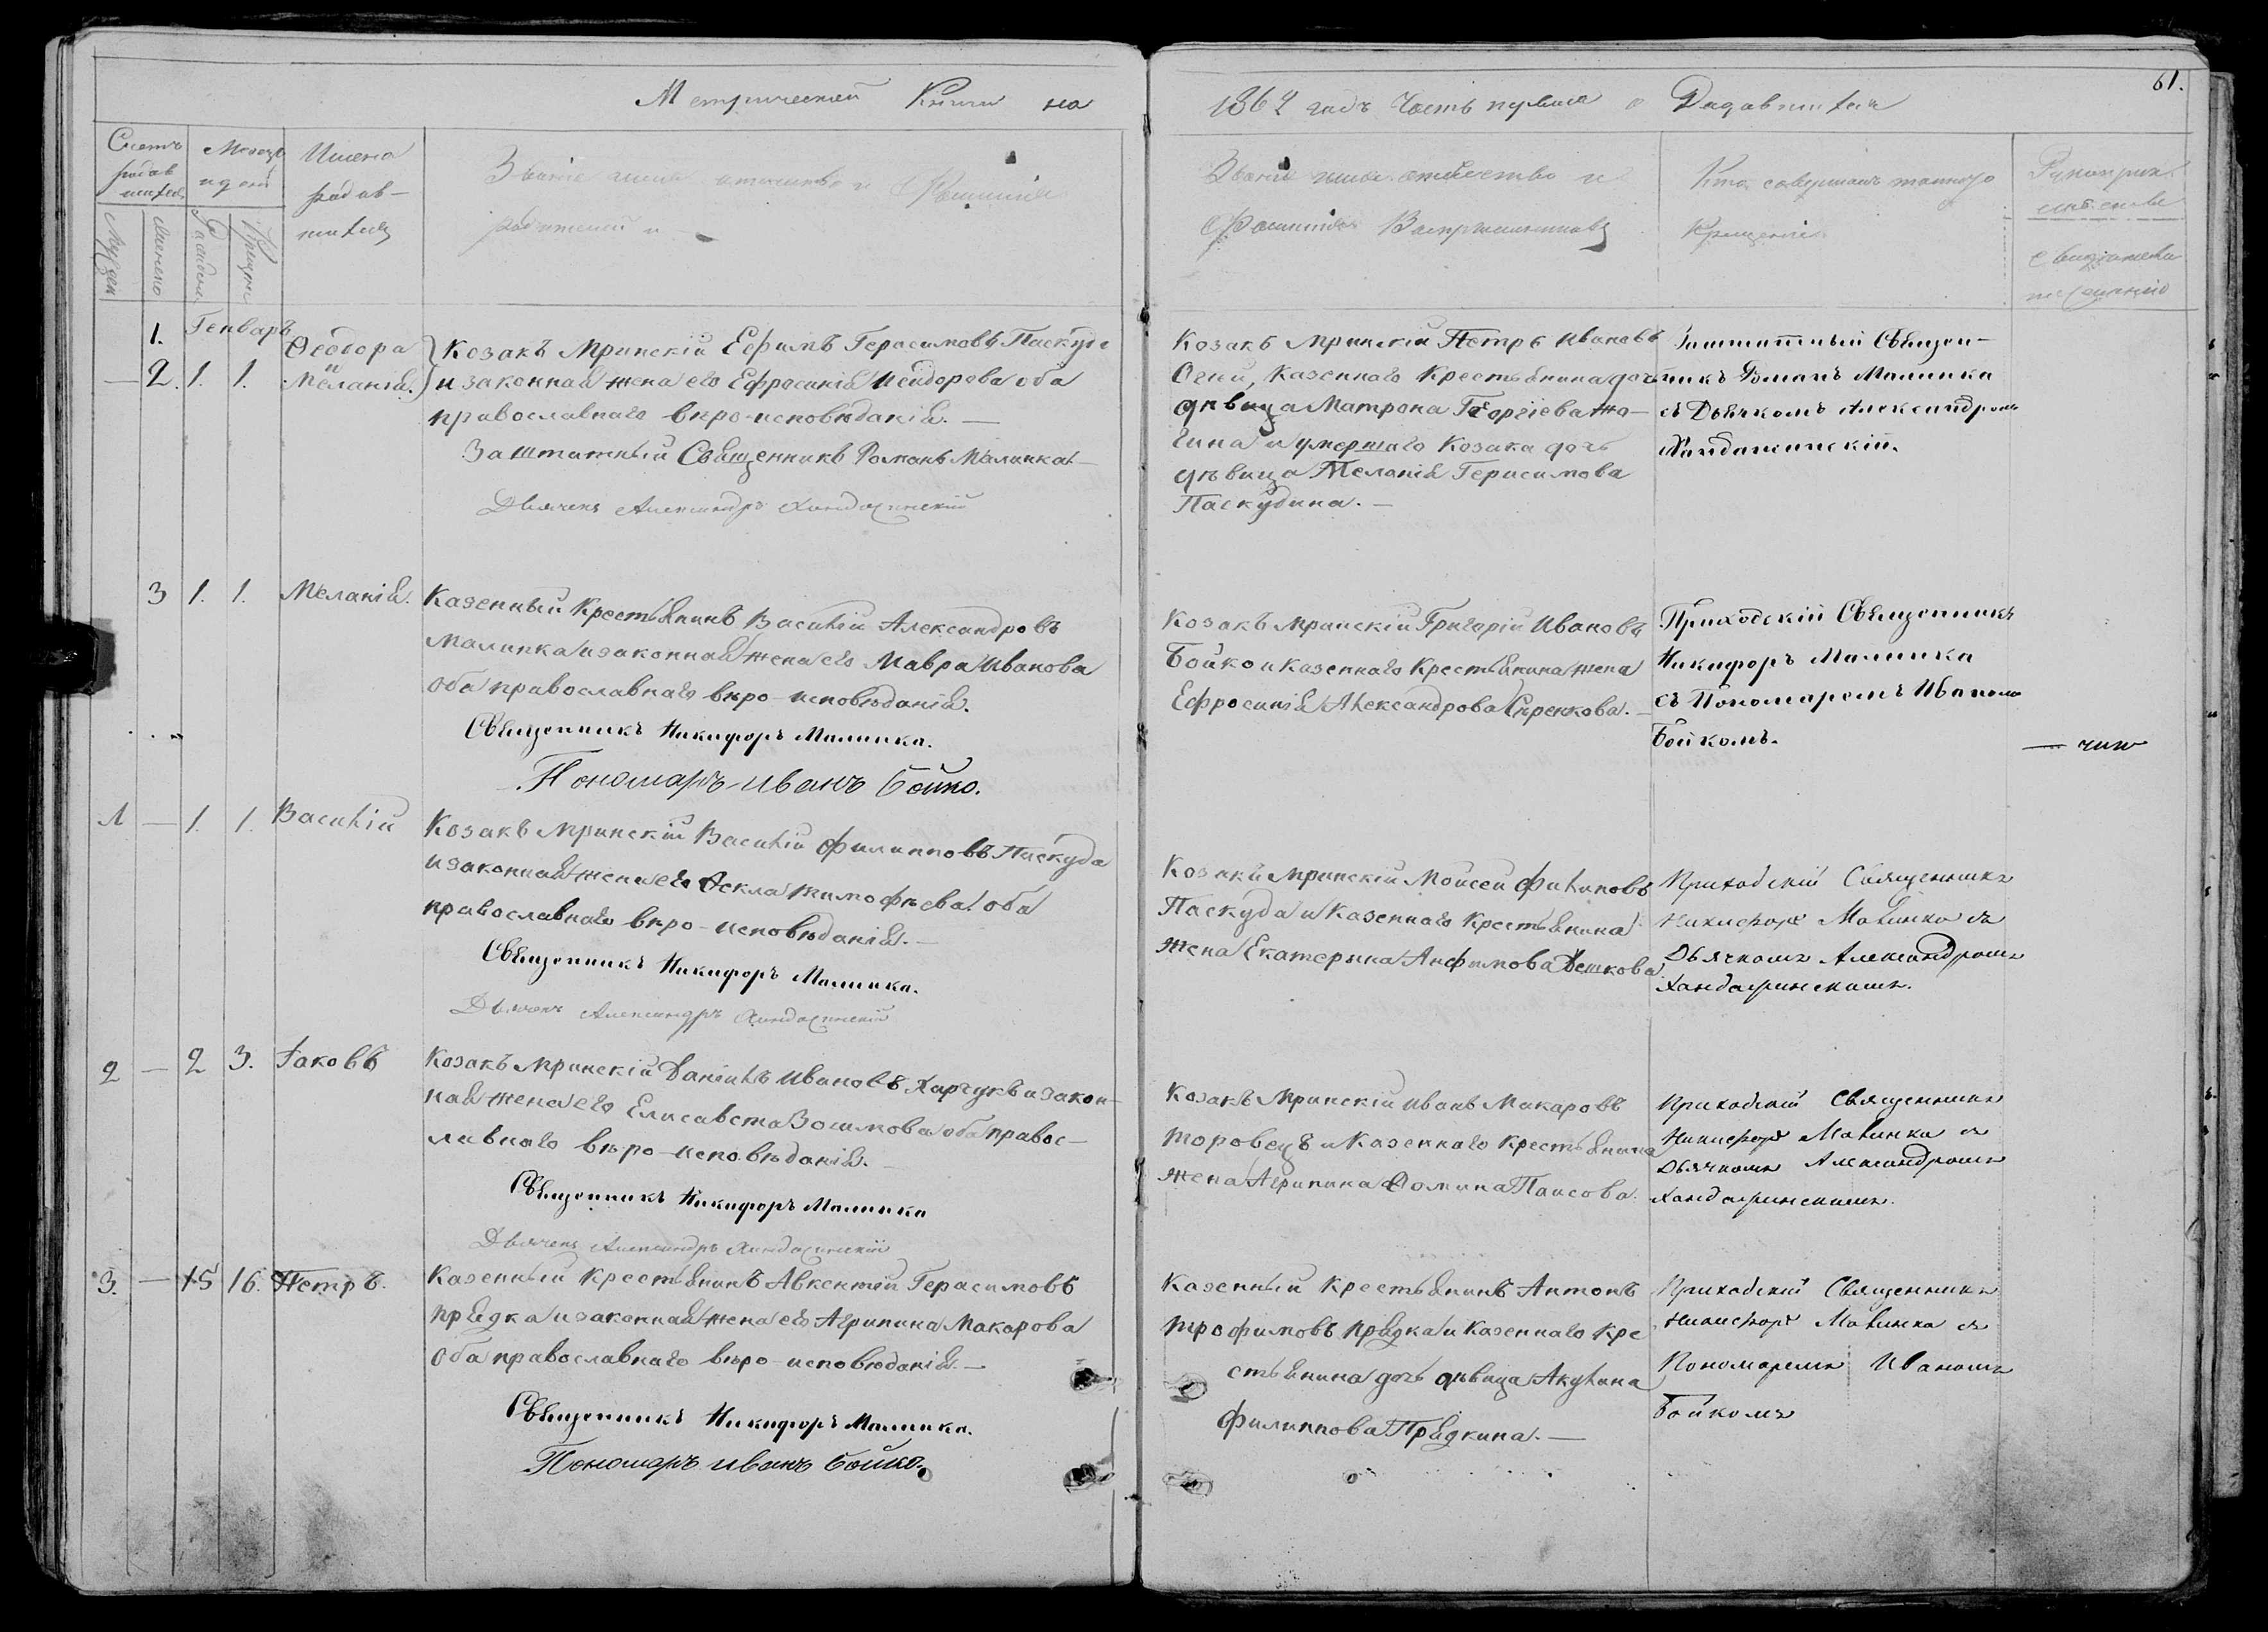 Метрической Книги на
1862 годъ Часть первая о Родившихся
61.
Счетъ родив-шихся
Мужеск
Женско
Месяцъ и день
Рожден.
Крещен
Имена родив-шихся
Званіе имя отчество и Фамилія
родителей и
Званіе имя отчество и
Фамилія Воспріемниковъ
Кто совершалъ таинство
Крещенія
Рукоприк
свидѣтелей
по желанію
Генварь
1.
— 2. 1. 1.
Ѳеодора
и
Меланія.
Козакъ Мринскій Ефимъ Герасимовъ Паскуда
и законная жена его Ефросинія Исидорова оба
православнаго вѣро-исповѣданія. —
Заштатный Священникъ Романъ Малинка. —
Дьячекъ Александръ
Козакъ Мринскій Петръ Ивановъ
Огій, Казеннаго Крестьянина дочь
дѣвица Матрона Георгіева
и умершаго Козака дочь
дѣвица Меланія Герасимова
Паскудина. —
Заштатный Священ-
никъ Романъ Малинка
съ Дьячкомъ Александромъ
3 1. 1. Меланія.
Казенный Крестьянинъ Василій Александровъ
Малинка и законная жена его Мавра Иванова
оба православнаго вѣро-исповѣданія.
Священникъ Никифоръ Малинка.
Пономарь Иванъ Бойко.
Козакъ Мринскій Григорій Ивановъ
Бойко и Казеннаго Крестьянина жена
Ефросинія Александрова
Приходскій Священникъ
Никифоръ Малинка
съ Пономаремъ Иваномъ
Бойкомъ.
1 — 1. 1. Василій
Козакъ Мринскій Василій Филипповъ Паскуда
и законная жена его Ѳекла Тимофѣева оба
православнаго вѣро-исповѣданія. —
Священникъ Никифоръ Малинка.
Дьячекъ Александръ
Козакъ Мринскій Моисей Филиповъ
Паскуда и Казеннаго Крестьянина
жена Екатерина Анфимова Дешкова
Приходскій Священникъ
Никифоръ Малинка съ
Дьячкомъ Александромъ
2 — 2 3. Іаковъ
Козакъ Мринскій Даніилъ Ивановъ Харчукъ и закон-
ная жена его Елисавета Зосимова оба правос-
лавнаго вѣро-исповѣданія.
Священникъ Никифоръ Малинка
Дьячекъ Александръ
Козакъ Мринскій Иванъ Макаровъ
Торовецъ и Казеннаго Крестьянина
жена Агрипина Фомина Паисова.
Приходскій Священникъ
Никифоръ Малинка съ
Дьячкомъ Александромъ
3. — 15 16. Петръ.
Казенный Крестьянинъ Авксентій Герасимовъ
Прядка и законная жена его Агрипина Макарова
оба православнаго вѣро-исповѣданія. —
Священникъ Никифоръ Малинка.
Пономарь Иванъ Бойко.
Казенный Крестьянинъ Антонъ
Трофимовъ Прядка и Казеннаго Кре
стьянина дочь дѣвица Акулина
Филиппова Прядкина. —
Приходскій Священникъ
Никифоръ Малинка съ
Пономаремъ Иваномъ
Бойкомъ